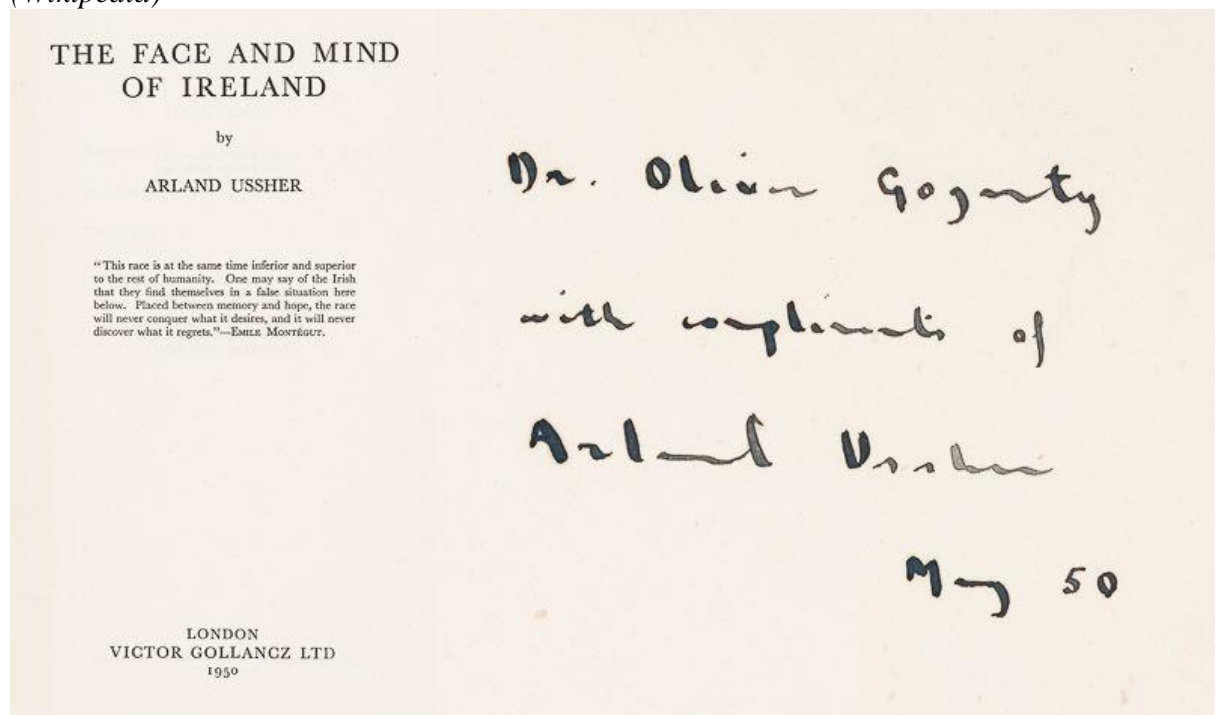 (Wikipedia)
THE FACE AND MIND
OF IRELAND
by
ARLAND USSHER
“This race is at the same time inferior and superior
to the rest of humanity. One may say of the Irish
that they find themselves in a false situation here
below. Placed between memory and hope, the race
will never conquer what it desires, and it will never
discover what it regrets.”—EMILE MONTÉGUT.
LONDON
VICTOR GOLLANCZ LTD
1950
Dr. Oliver Gogarty
with compliments of
Arland Ussher
May 50